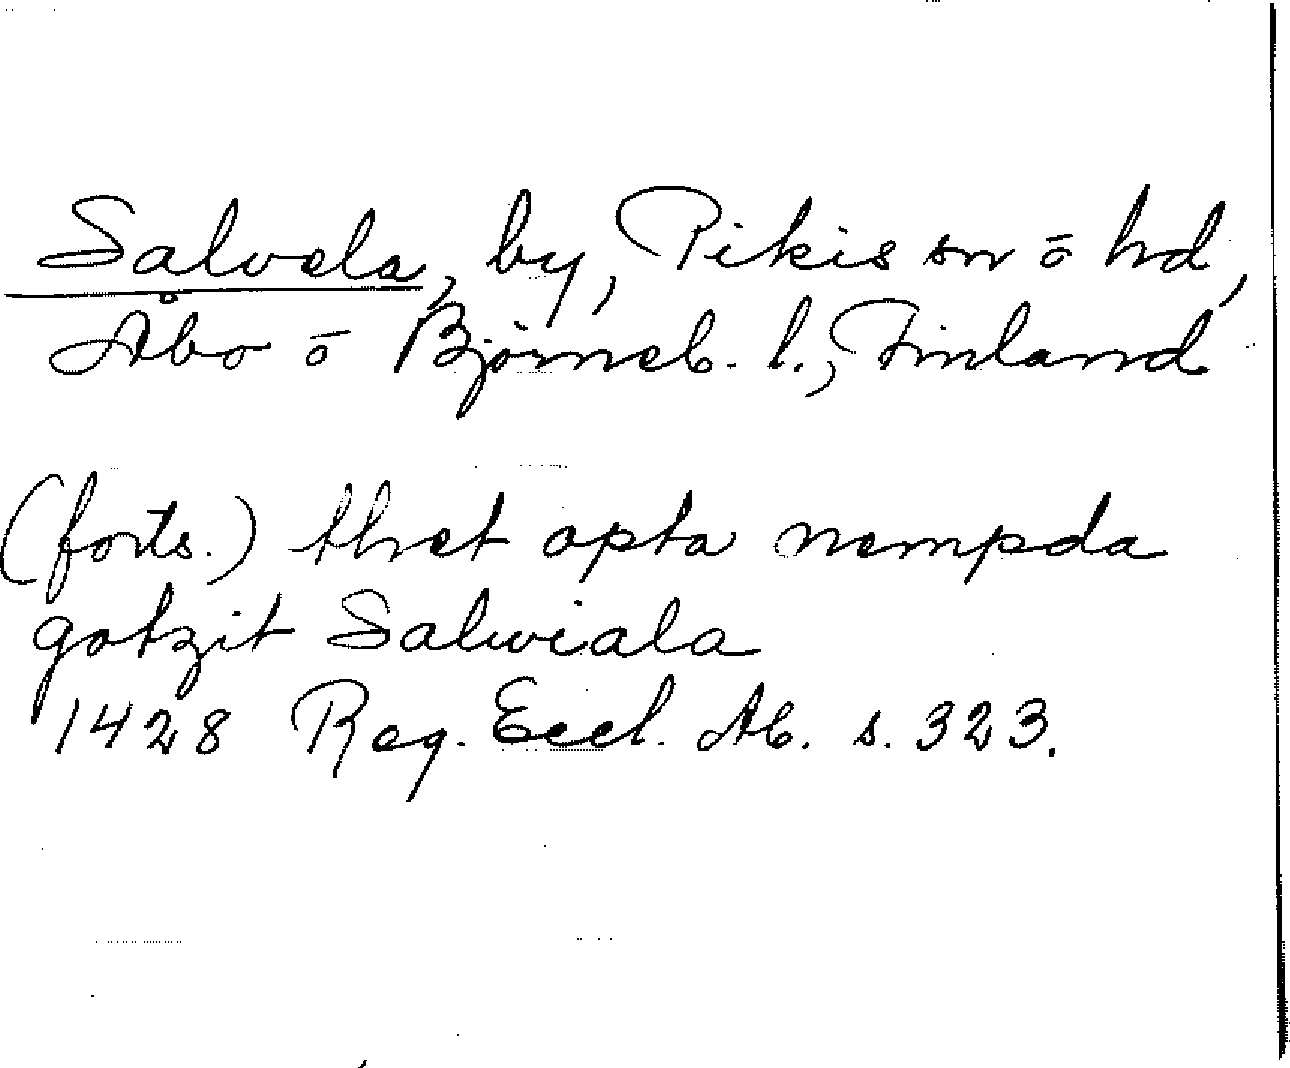 Salvela, by, Pikis sn ō hd,
Åbo ō Björneb. l., Finland
(forts.) thet opta nempda
gotzit Salwiala
1428 Reg. Eccl. Ab. s. 323.